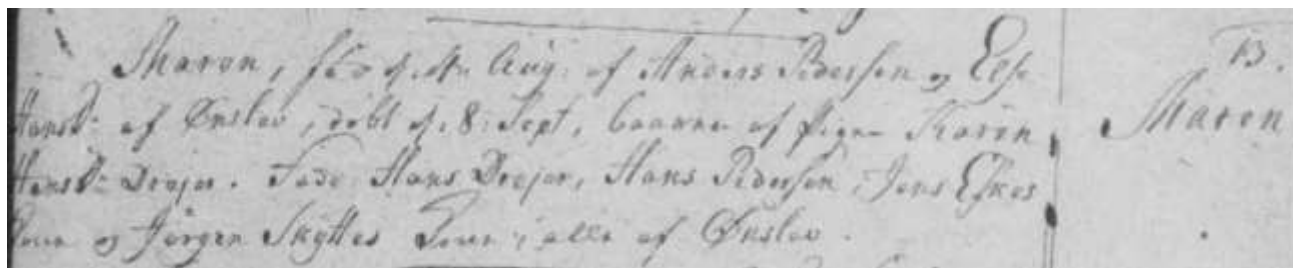 Maren, fød d. Aug. af Anders Pedersen og Else
Hansd. af Ønslev, døbt d. 8. Sept, baaren af Pigen Karen
Hansd. Drejer. Fadd. Hans Drejer, Hans Pedersen, Jens Eskes
Kone og Jørgen Skyttes Kone, alle af Ønslev.
13.
Maren